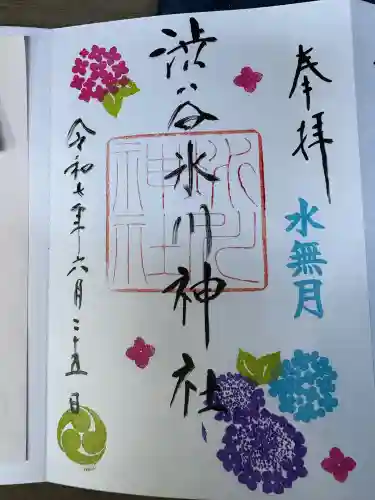 奉拝
水無月
渋谷氷川神社
氷川神社
令和七年六月二十五日